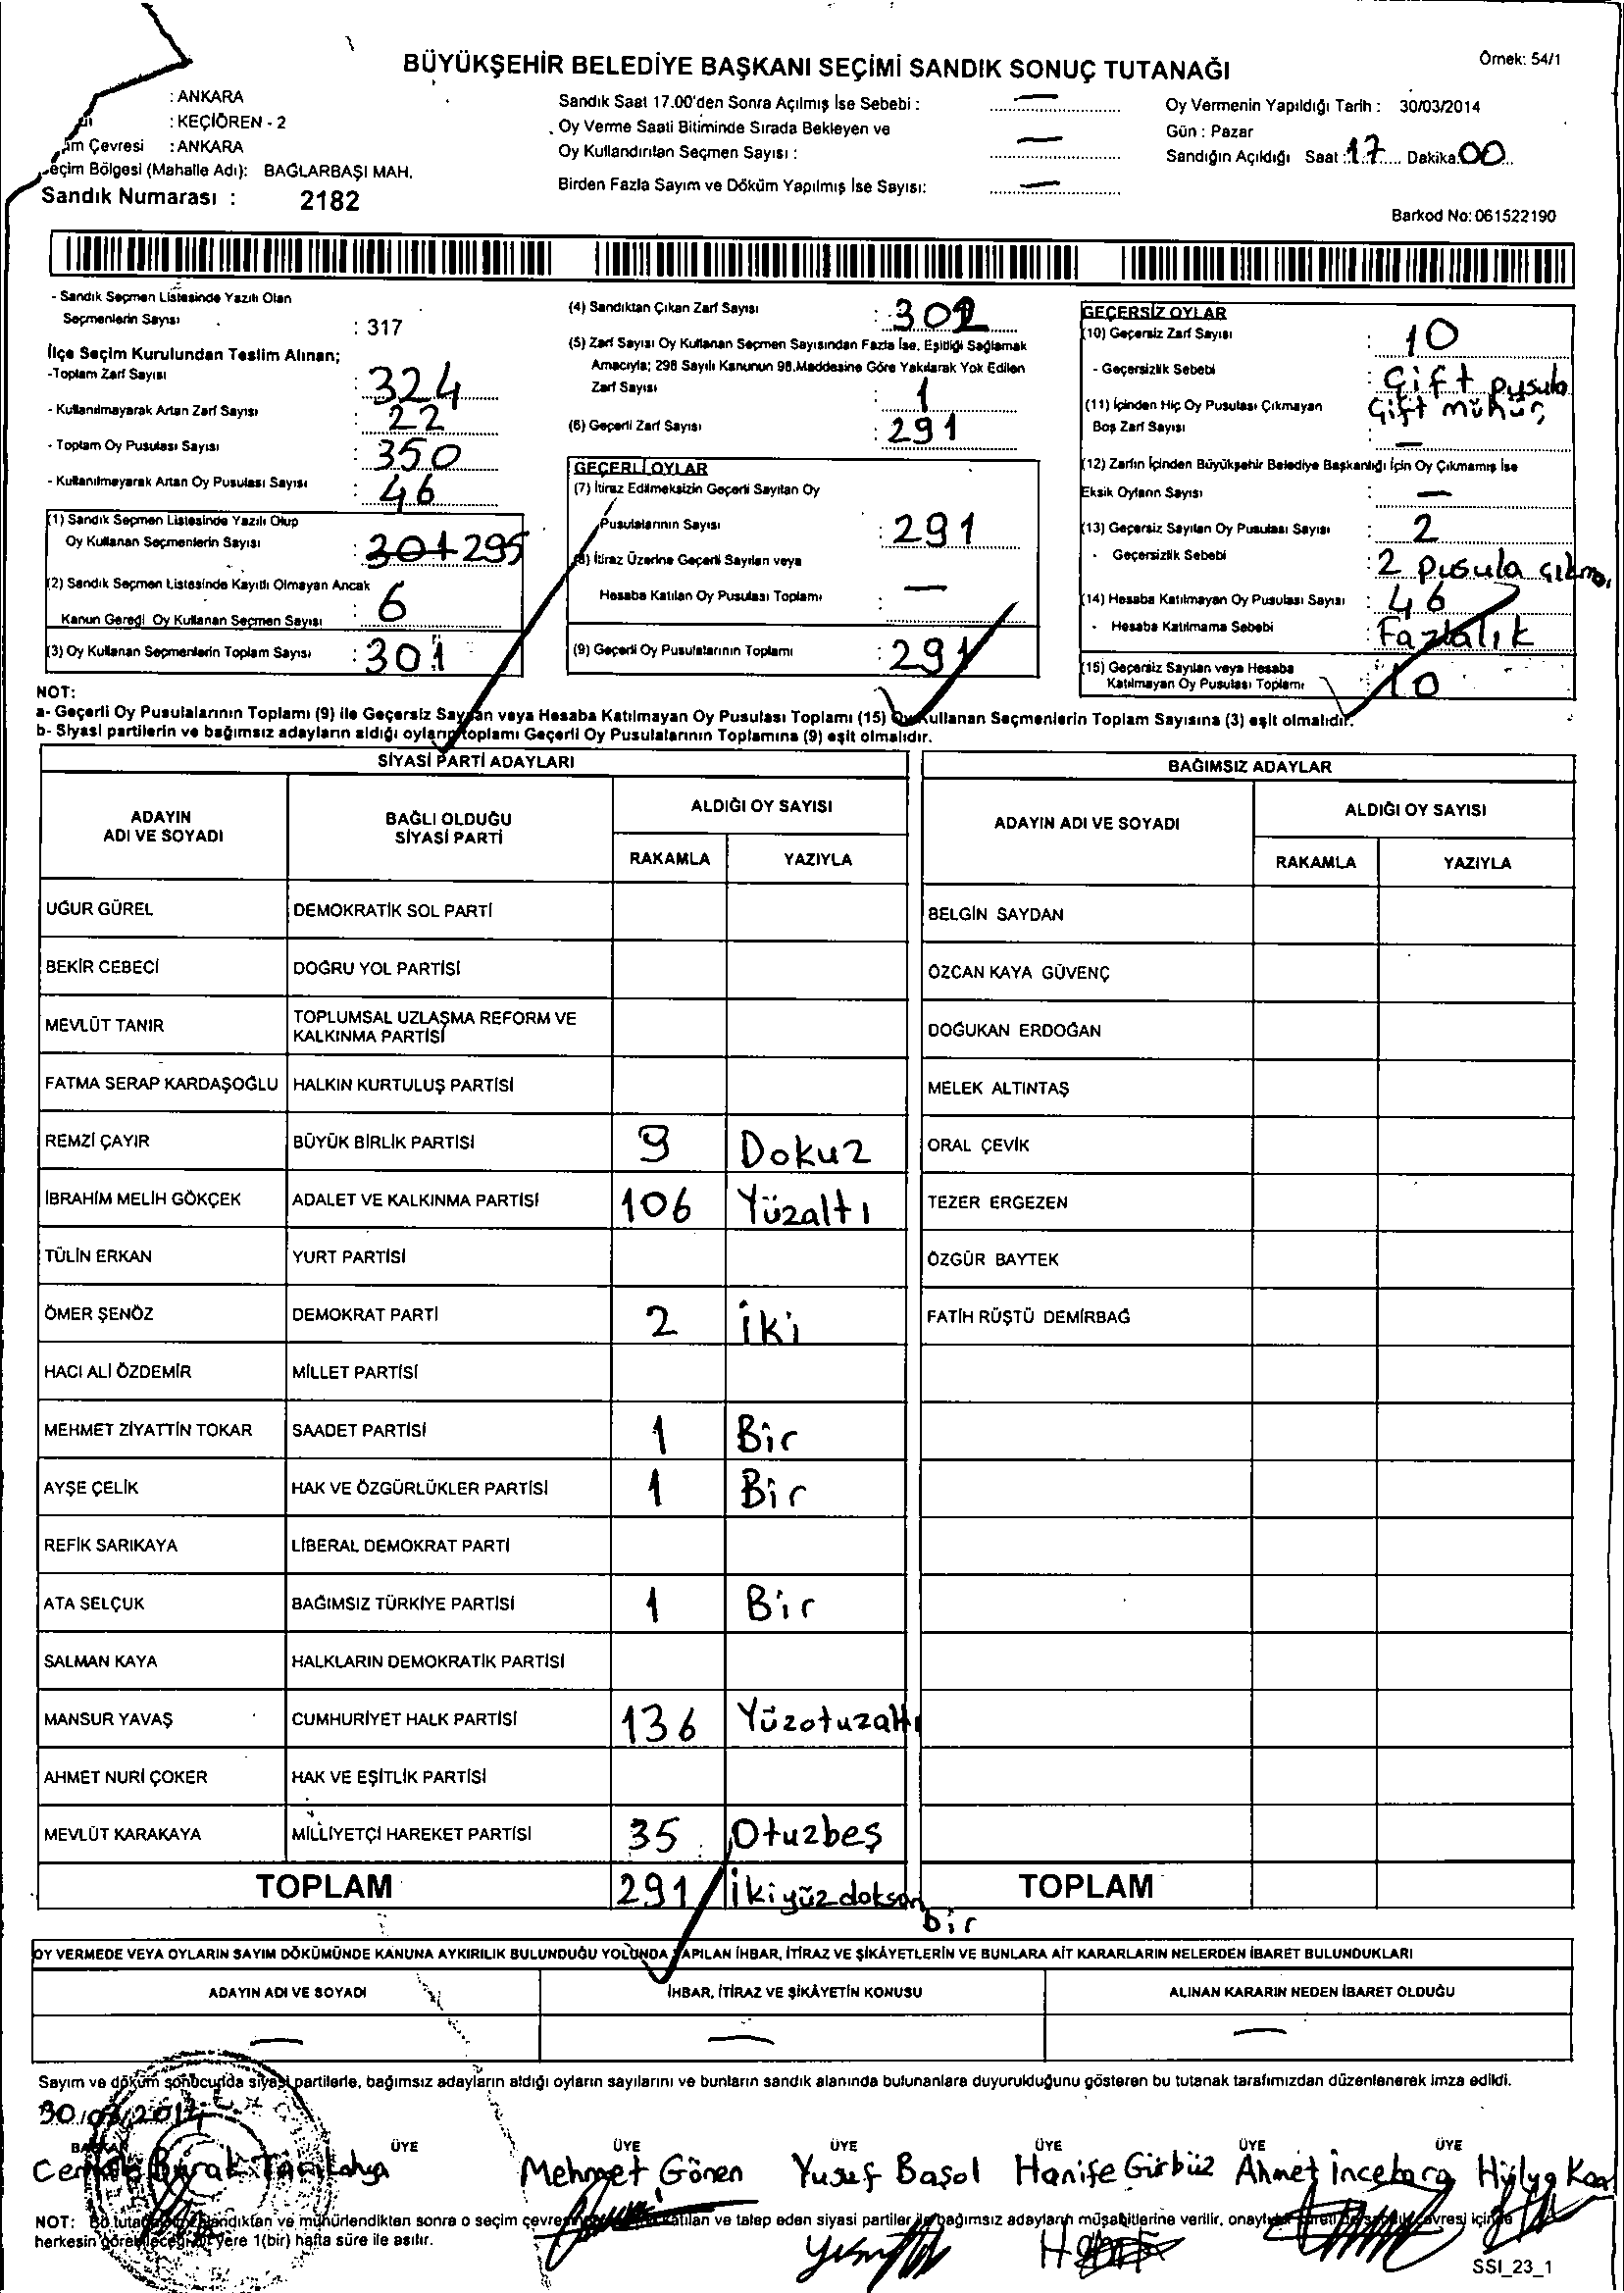 Örnek: 54/1
BÜYÜKŞEHİR BELEDİYE BAŞKANI SEÇİMİ SANDIK SONUÇ TUTANAĞI
: ANKARA
: KEÇİÖREN - 2
Çevresi : ANKARA
Bölgesi (Mahalle Adı): BAĞLARBAŞI MAH.
Sandık Numarası : 2182
Sandık Saat 17.00'den Sonra Açılmış İse Sebebi : —
Oy Verme Saati Bitiminde Sırada Bekleyen ve
Oy Kullandırılan Seçmen Sayısı : —
Birden Fazla Sayım ve Döküm Yapılmış İse Sayısı: —
Oy Vermenin Yapıldığı Tarih : 30/03/2014
Gün : Pazar
Sandığın Açıldığı Saat : 17 Dakika: 00
Barkod No: 061522190
- Sandık Seçmen Listesinde Yazılı Olan
Seçmenlerin Sayısı : 317
İlçe Seçim Kurulundan Teslim Alınan;
-Toplam Zarf Sayısı : 324
- Kullanılmayarak Artan Zarf Sayısı : 22
- Toplam Oy Pusulası Sayısı : 350
- Kullanılmayarak Artan Oy Pusulası Sayısı : 46
(1) Sandık Seçmen Listesinde Yazılı Olup
Oy Kullanan Seçmenlerin Sayısı : 301 295
(2) Sandık Seçmen Listesinde Kayıtlı Olmayan Ancak
Kanun Gereği Oy Kullanan Seçmen Sayısı : 6
(3) Oy Kullanan Seçmenlerin Toplam Sayısı : 301
(4) Sandıktan Çıkan Zarf Sayısı : 302
(5) Zarf Sayısı Oy Kullanan Seçmen Sayısından Fazla İse, Eşitliği Sağlamak
Amacıyla; 298 Sayılı Kanunun 98.Maddesine Göre Yakılarak Yok Edilen
Zarf Sayısı : 1
(6) Geçerli Zarf Sayısı : 291
GEÇERLİ OYLAR
(7) İtiraz Edilmeksizin Geçerli Sayılan Oy
Pusulalarının Sayısı : 291
(8) İtiraz Üzerine Geçerli Sayılan veya
Hesaba Katılan Oy Pusulası Toplamı : —
(9) Geçerli Oy Pusulalarının Toplamı : 291
GEÇERSİZ OYLAR
(10) Geçersiz Zarf Sayısı : 10
- Geçersizlik Sebebi : Çift pusula
Çift mühür
(11) İçinden Hiç Oy Pusulası Çıkmayan
Boş Zarf Sayısı : —
(12) Zarfın İçinden Büyükşehir Belediye Başkanlığı İçin Oy Çıkmamış İse
Eksik Oyların Sayısı : —
(13) Geçersiz Sayılan Oy Pusulası Sayısı : 2
- Geçersizlik Sebebi : 2 pusula
(14) Hesaba Katılmayan Oy Pusulası Sayısı : 46
- Hesaba Katılmama Sebebi : Fazlalık
(15) Geçersiz Sayılan veya Hesaba
Katılmayan Oy Pusulası Toplamı : 10
NOT:
a- Geçerli Oy Pusulalarının Toplamı (9) ile Geçersiz Sayılan veya Hesaba Katılmayan Oy Pusulası Toplamı (15) Oy Kullanan Seçmenlerin Toplam Sayısına (3) eşit olmalıdır.
b- Siyasi partilerin ve bağımsız adayların aldığı oyların toplamı Geçerli Oy Pusulalarının Toplamına (9) eşit olmalıdır.
SİYASİ PARTİ ADAYLARI
ADAYIN ADI VE SOYADI BAĞLI OLDUĞU SİYASİ PARTİ ALDIĞI OY SAYISI
RAKAMLA YAZIYLA
UĞUR GÜREL DEMOKRATİK SOL PARTİ
BEKİR CEBECİ DOĞRU YOL PARTİSİ
MEVLÜT TANIR TOPLUMSAL UZLAŞMA REFORM VE KALKINMA PARTİSİ
FATMA SERAP KARDAŞOĞLU HALKIN KURTULUŞ PARTİSİ
REMZİ ÇAYIR BÜYÜK BİRLİK PARTİSİ 9 Dokuz
İBRAHİM MELİH GÖKÇEK ADALET VE KALKINMA PARTİSİ 106 Yüzaltı
TÜLİN ERKAN YURT PARTİSİ
ÖMER ŞENÖZ DEMOKRAT PARTİ 2 iki
HACI ALİ ÖZDEMİR MİLLET PARTİSİ
MEHMET ZİYATTİN TOKAR SAADET PARTİSİ 1 Bir
AYŞE ÇELİK HAK VE ÖZGÜRLÜKLER PARTİSİ 1 Bir
REFİK SARIKAYA LİBERAL DEMOKRAT PARTİ
ATA SELÇUK BAĞIMSIZ TÜRKİYE PARTİSİ 1 Bir
SALMAN KAYA HALKLARIN DEMOKRATİK PARTİSİ
MANSUR YAVAŞ CUMHURİYET HALK PARTİSİ 136 Yüzotuzaltı
AHMET NURİ ÇOKER HAK VE EŞİTLİK PARTİSİ
MEVLÜT KARAKAYA MİLLİYETÇİ HAREKET PARTİSİ 35 Otuzbeş
TOPLAM 291 ikiyüzdoksan
bir
BAĞIMSIZ ADAYLAR
ADAYIN ADI VE SOYADI ALDIĞI OY SAYISI
RAKAMLA YAZIYLA
BELGİN SAYDAN
ÖZCAN KAYA GÜVENÇ
DOĞUKAN ERDOĞAN
MELEK ALTINTAŞ
ORAL ÇEVİK
TEZER ERGEZEN
ÖZGÜR BAYTEK
FATİH RÜŞTÜ DEMİRBAĞ
TOPLAM
OY VERMEDE VEYA OYLARIN SAYIM DÖKÜMÜNDE KANUNA AYKIRILIK BULUNDUĞU YOLUNDA YAPILAN İHBAR, İTİRAZ VE ŞİKÂYETLERİN VE BUNLARA AİT KARARLARIN NELERDEN İBARET BULUNDUKLARI
ADAYIN ADI VE SOYADI İHBAR, İTİRAZ VE ŞİKÂYETİN KONUSU ALINAN KARARIN NEDEN İBARET OLDUĞU
— — —
Sayım ve döküm sonucunda siyasi partilerle, bağımsız adayların aldığı oyların sayılarını ve bunların sandık alanında bulunanlara duyurulduğunu gösteren bu tutanak tarafımızdan düzenlenerek imza edildi.
30/03/2014
BAŞKAN ÜYE ÜYE ÜYE ÜYE ÜYE ÜYE
Burak Mehmet Gönen Yusuf Başol Hanife Gürbüz Ahmet Hülya
NOT: Bu ve mühürlendikten sonra o seçim katılan ve talep eden siyasi partiler ile bağımsız adayların müşahitlerine verilir, içinde
herkesin görebileceği bir yere 1(bir) hafta süre ile asılır.
SSI_23_1